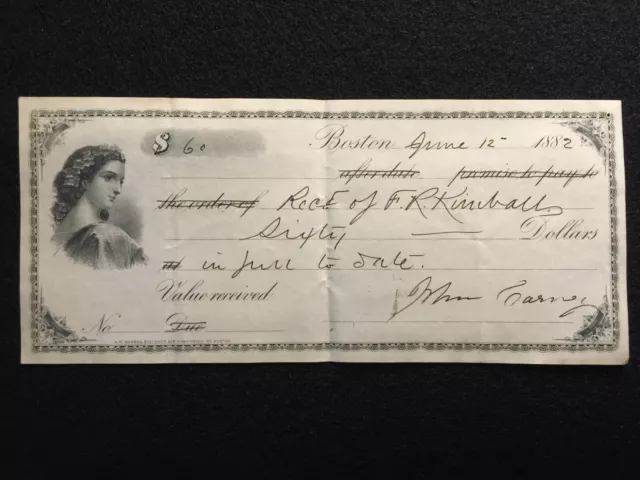 $ 60 Boston June 12 1882
after date promise to pay to
the order of Recd of F. R. Kimball
Sixty — Dollars
at in full to date.
Value received John Carney
No. Due